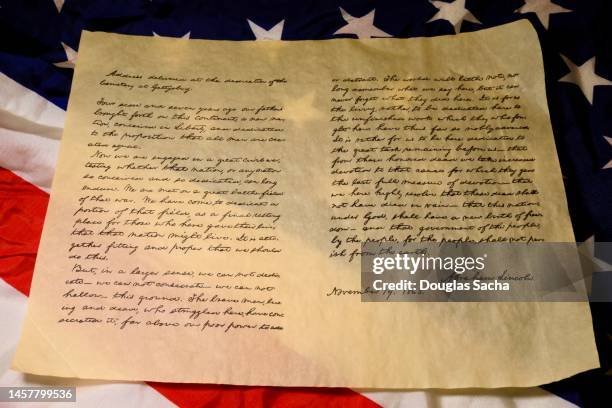 Address delivered at the dedication of the
Cemetery at Gettysburg.
Four score and seven years ago our fathers
brought forth on this continent, a new na-
tion, conceived in Liberty, and dedicated
to the proposition that all men are cre-
ated equal.
Now we are engaged in a great civil war,
testing whether that nation, or any nation
so conceived and so dedicated, can long
endure. We are met on a great battle-field
of that war. We have come to dedicate a
portion of that field, as a final resting
place for those who here gave their lives
that that nation might live. It is alto-
gether fitting and proper that we should
do this.
But, in a larger sense, we can not dedi-
cate— we can not consecrate— we can not
hallow— this ground. The brave men, liv-
ing and dead, who struggled here, have con-
secrated it, far above our poor power to add
or detract. The world will little note, nor
long remember what we say here, but it can
never forget what they did here. It is for us
the living, rather, to be dedicated here to
the unfinished work which they who fou-
ght here have thus far so nobly advanced.
It is rather for us to be here dedicated to
the great task remaining before us— that
from these honored dead we take increased
devotion to that cause for which they gave
the last full measure of devotion— that
we here highly resolve that these dead shall
not have died in vain— that this nation,
under God, shall have a new birth of free-
dom— and that government of the people,
by the people, for the people, shall not per-
ish from the earth.
Abraham Lincoln.
November 19, 1863.
gettyimages
Credit: Douglas Sacha
1457799536